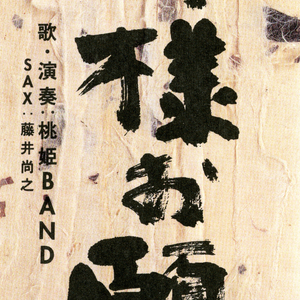 様お願
歌・演奏：桃姫BAND
SAX：藤井尚之